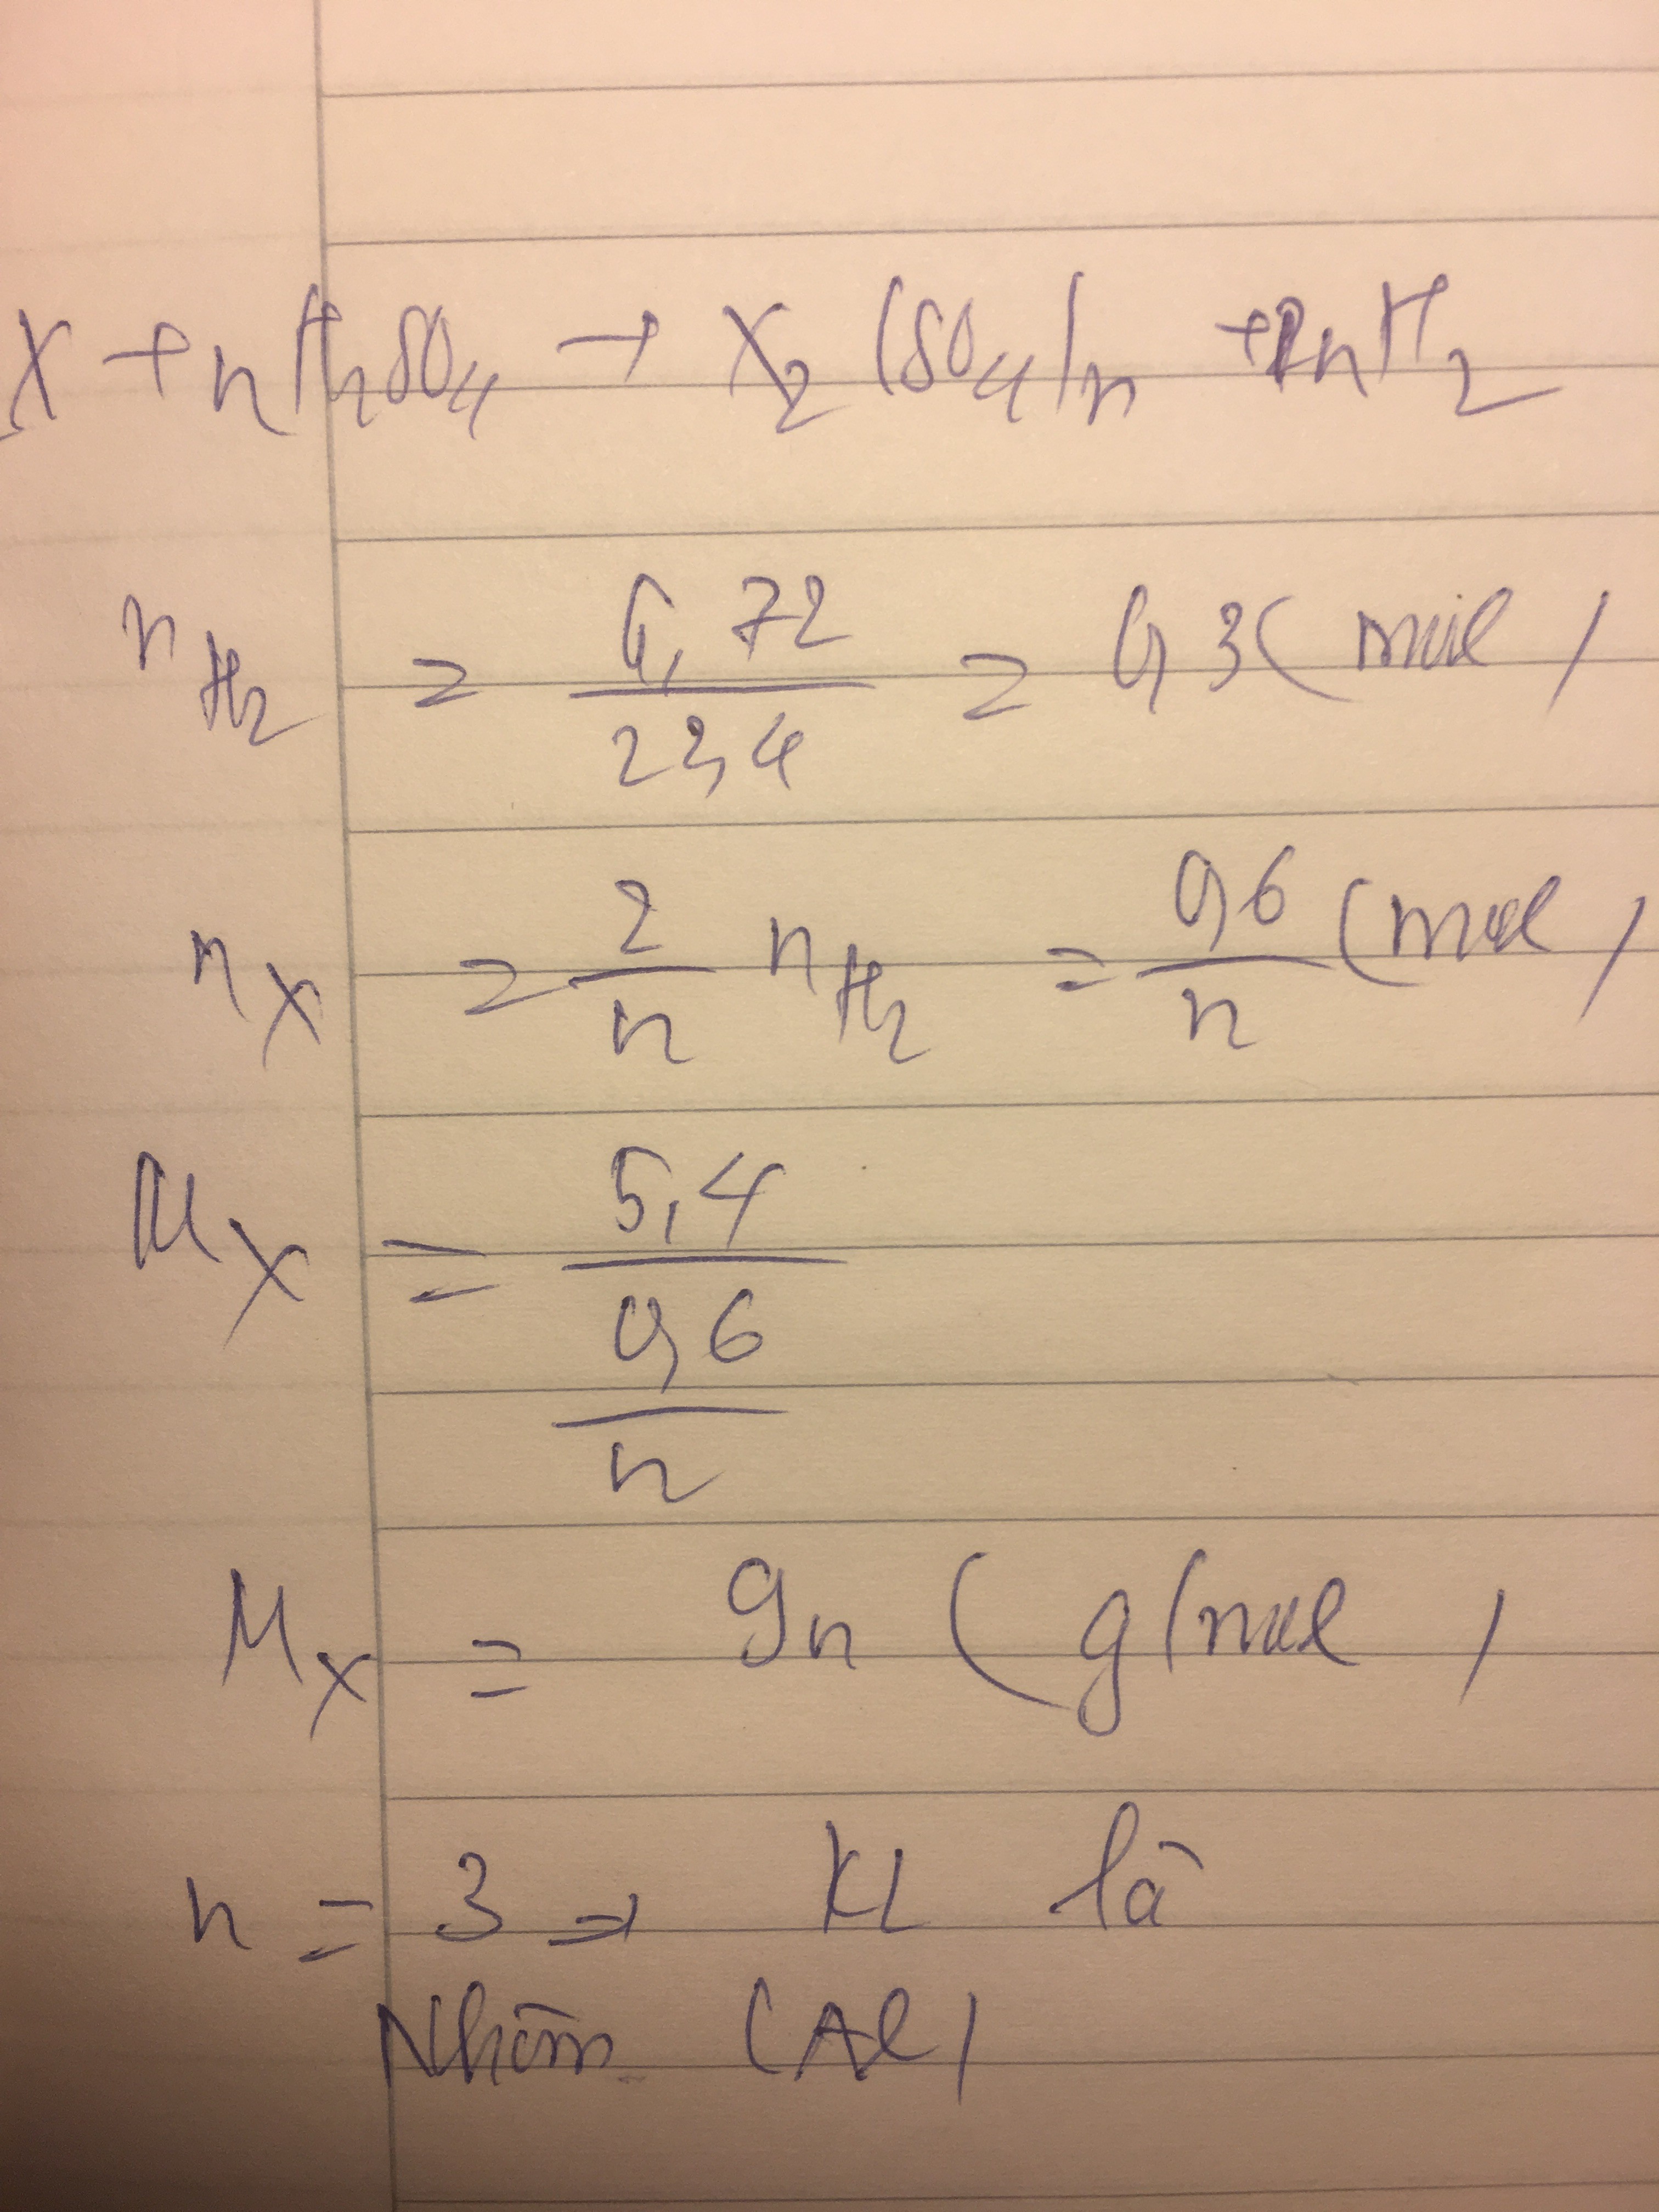 X + nH₂SO₄ → X₂(SO₄)n + nH₂
nH₂ = 6,72/22,4 = 0,3 (mol)
nX = 2/n nH₂ = 0,6/n (mol)
MX = 5,4/(0,6/n)
MX = 9n (g/mol)
n = 3 ⇒ KL là
Nhôm (Al)